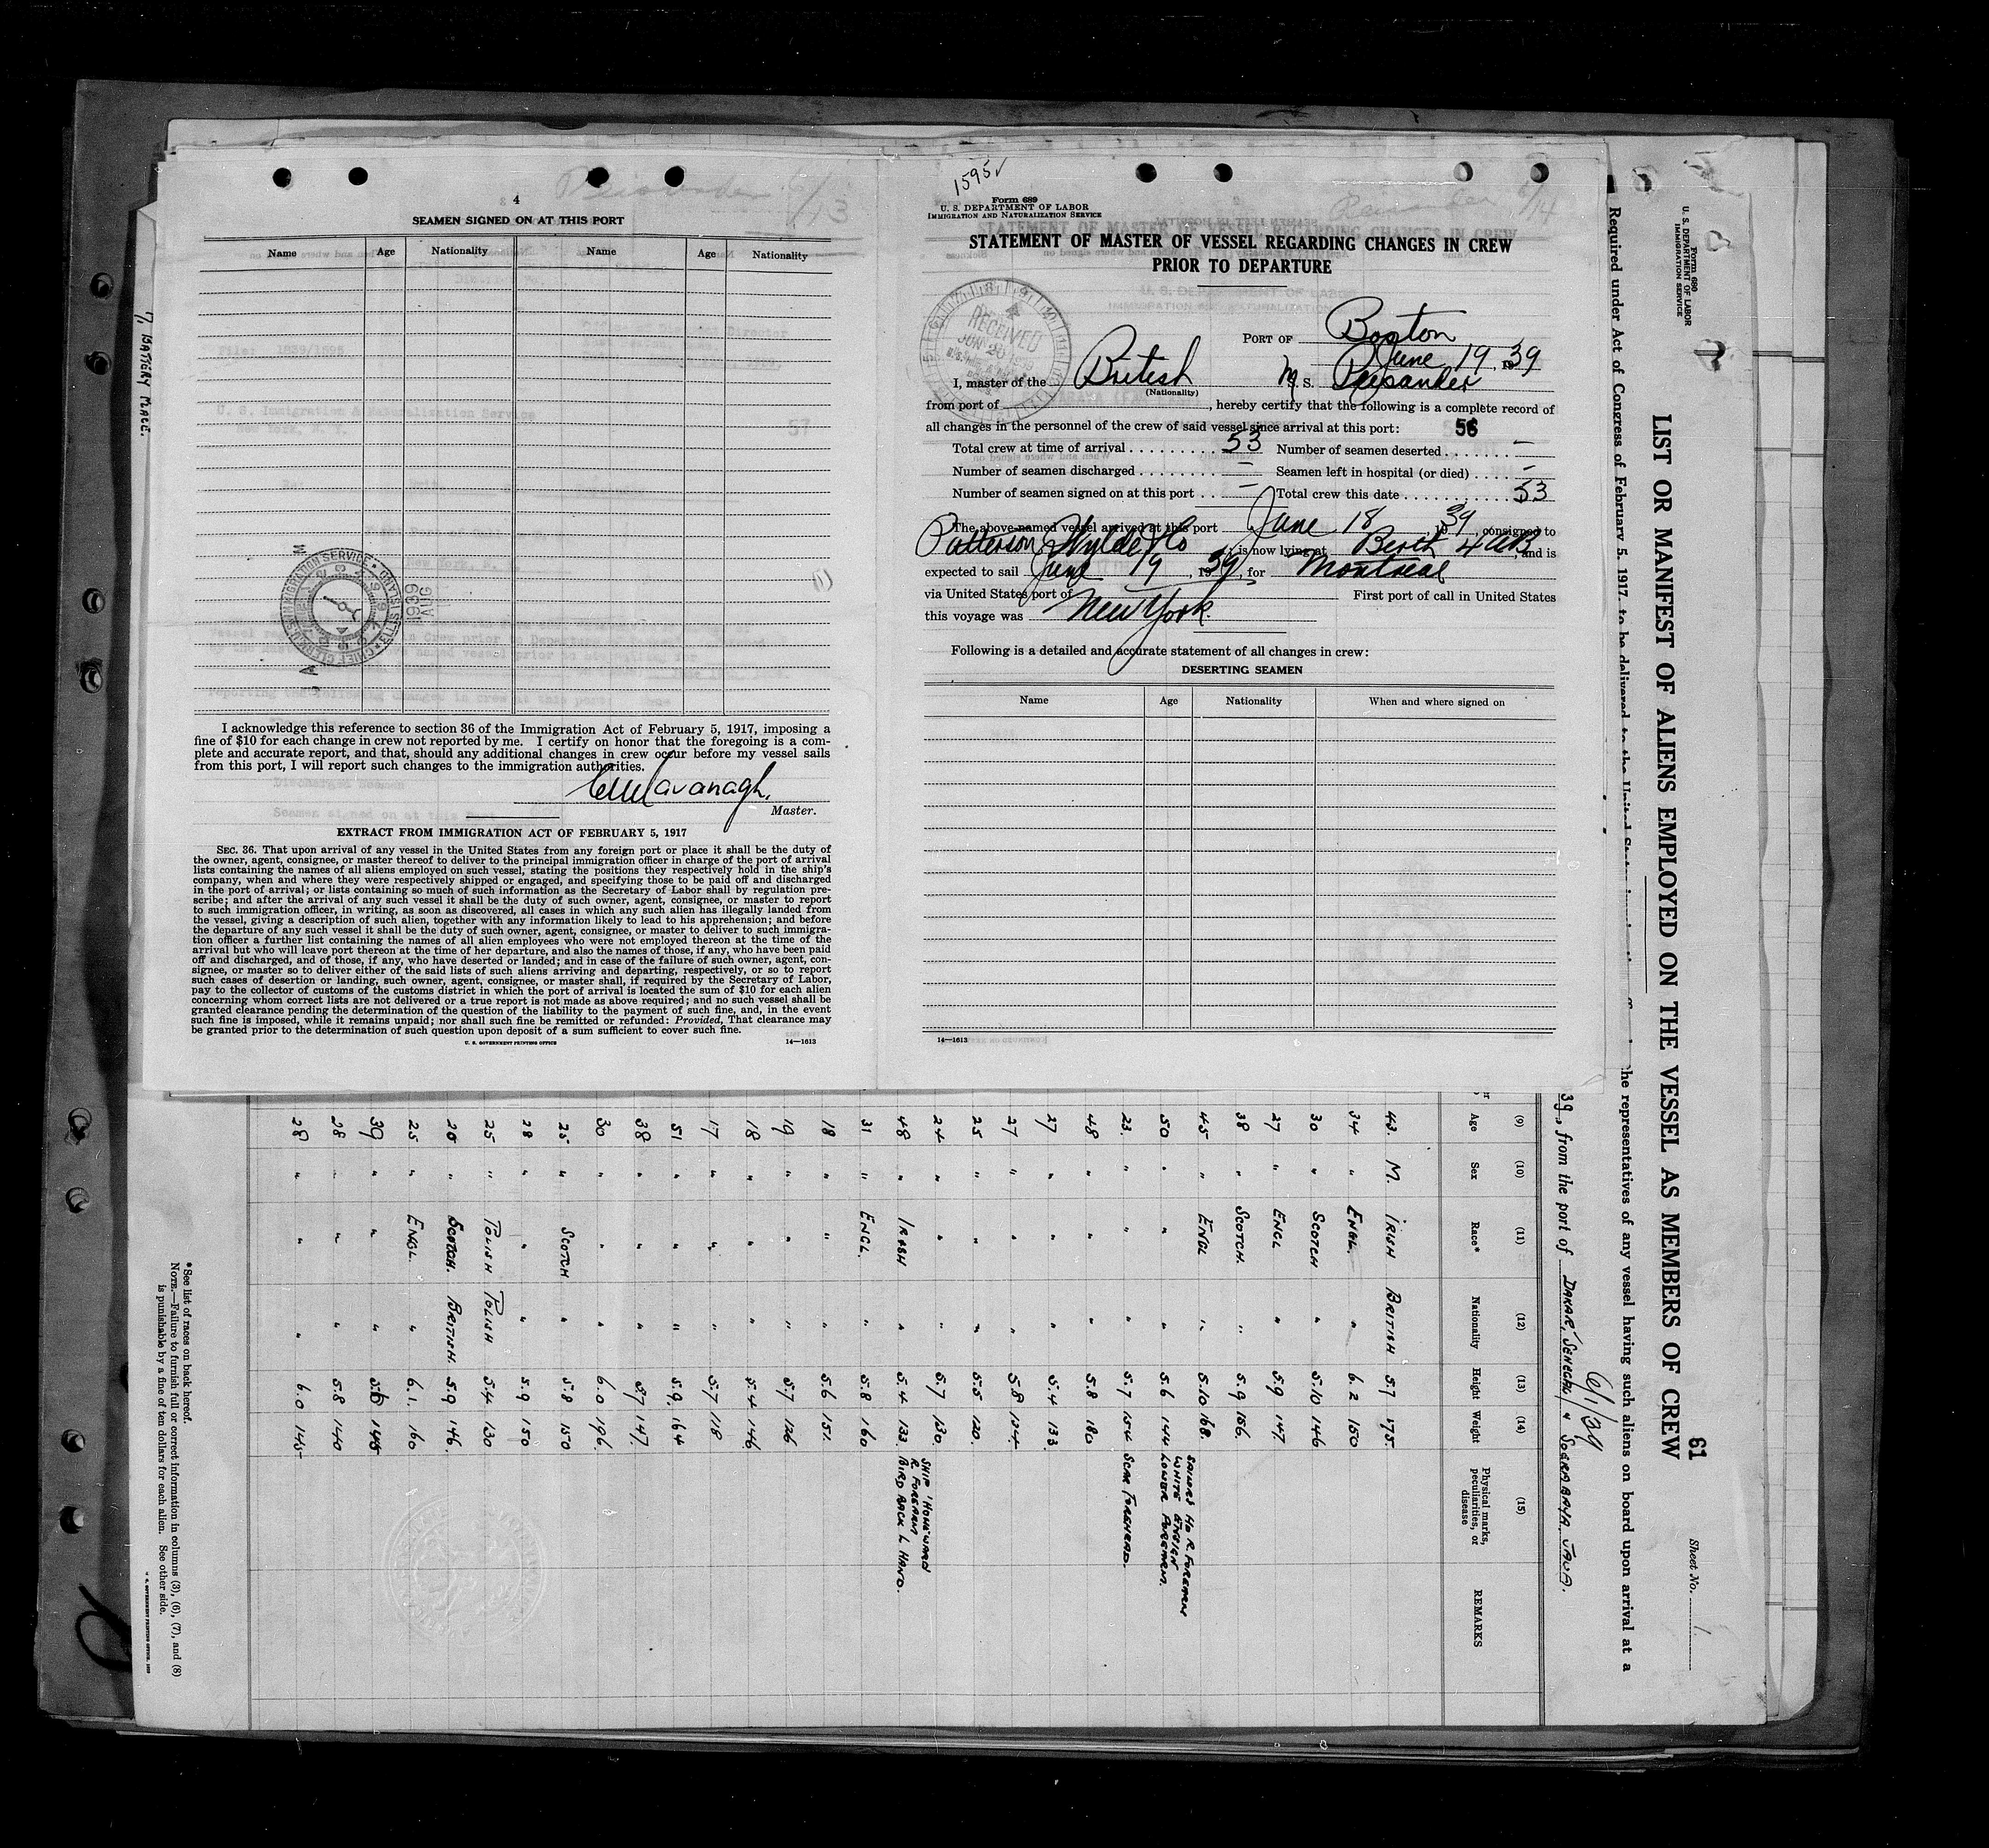 4
SEAMEN SIGNED ON AT THIS PORT
Name Age Nationality Name Age Nationality
I acknowledge this reference to section 36 of the Immigration Act of February 5, 1917, imposing a
fine of $10 for each change in crew not reported by me. I certify on honor that the foregoing is a com-
plete and accurate report, and that, should any additional changes in crew occur before my vessel sails
from this port, I will report such changes to the immigration authorities.
Cavanagh.
Master.
EXTRACT FROM IMMIGRATION ACT OF FEBRUARY 5, 1917
SEC. 36. That upon arrival of any vessel in the United States from any foreign port or place it shall be the duty of
the owner, agent, consignee, or master thereof to deliver to the principal immigration officer in charge of the port of arrival
lists containing the names of all aliens employed on such vessel, stating the positions they respectively hold in the ship's
company, when and where they were respectively shipped or engaged, and specifying those to be paid off and discharged
in the port of arrival; or lists containing so much of such information as the Secretary of Labor shall by regulation pre-
scribe; and after the arrival of any such vessel it shall be the duty of such owner, agent, consignee, or master to report
to such immigration officer, in writing, as soon as discovered, all cases in which any such alien has illegally landed from
the vessel, giving a description of such alien, together with any information likely to lead to his apprehension; and before
the departure of any such vessel it shall be the duty of such owner, agent, consignee, or master to deliver to such immigra-
tion officer a further list containing the names of all alien employees who were not employed thereon at the time of the
arrival but who will leave port thereon at the time of her departure, and also the names of those, if any, who have been paid
off and discharged, and of those, if any, who have deserted or landed; and in case of the failure of such owner, agent, con-
signee, or master so to deliver either of the said lists of such aliens arriving and departing, respectively, or so to report
such cases of desertion or landing, such owner, agent, consignee, or master shall, if required by the Secretary of Labor,
pay to the collector of customs of the customs district in which the port of arrival is located the sum of $10 for each alien
concerning whom correct lists are not delivered or a true report is not made as above required; and no such vessel shall be
granted clearance pending the determination of the question of the liability to the payment of such fine, and, in the event
such fine is imposed, while it remains unpaid; nor shall such fine be remitted or refunded: Provided, That clearance may
be granted prior to the determination of such question upon deposit of a sum sufficient to cover such fine.
U. S. GOVERNMENT PRINTING OFFICE 14—1613
1595
Form 689
U. S. DEPARTMENT OF LABOR
IMMIGRATION AND NATURALIZATION SERVICE
STATEMENT OF MASTER OF VESSEL REGARDING CHANGES IN CREW
PRIOR TO DEPARTURE
RECEIVED
PORT OF Boston
June 19, 1939
I, master of the British M. S. Peisander
(Nationality)
from port of , hereby certify that the following is a complete record of
all changes in the personnel of the crew of said vessel since arrival at this port: 56
Total crew at time of arrival 53 Number of seamen deserted —
Number of seamen discharged — Seamen left in hospital (or died) —
Number of seamen signed on at this port — Total crew this date 53
The above-named vessel arrived at this port June 18, 1939, consigned to
Patterson Wylde & Co, is now lying at Berth 4, and is
expected to sail June 19, 1939, for Montreal
via United States port of First port of call in United States
this voyage was New York.
Following is a detailed and accurate statement of all changes in crew:
DESERTING SEAMEN
Name Age Nationality When and where signed on
14—1613
7, BATTERY PLACE.
61
Sheet No. 1.
Form 680
U. S. DEPARTMENT OF LABOR
IMMIGRATION SERVICE
LIST OR MANIFEST OF ALIENS EMPLOYED ON THE VESSEL AS MEMBERS OF CREW
Required under Act of Congress of February 5, 1917, to be delivered to the United States
the representatives of any vessel having such aliens on board upon arrival at a
6/1/39
39, from the port of DAKAR, SENEGAL & SOERABAYA, JAVA.
(9) (10) (11) (12) (13) (14) (15)
Age Sex Race* Nationality Height Weight Physical marks, peculiarities, or disease REMARKS
43. M. IRISH BRITISH 5.7 175.
34 " ENGL. " 6.2 150
30 " SCOTCH " 5.10 146
27 " ENGL " 5.9 147.
38 " SCOTCH. " 5.9 156.
45 " ENGL " 5.10 168.
50 " " " 5.6 144
SAILORS HD R. FOREARM
WHITE ENSIGN
LOWER FOREARM.
23. " " " 5.7 154 SCAR FOREHEAD.
48 " " " 5.8 180
27 " " " 5.4 133
27 " " " 5.8 134.
25 " " " 5.5 120.
24 " " " 5.7 130.
SHIP 'HOMEWARD
R. FOREARM
48 " IRISH " 5.4 133. BIRD BACK L HAND.
31 " ENGL. " 5.8 160
18 " " " 5.6 151.
19 " " " 5.7 126
18 " " " 5.4 146
17 " " " 5.7 118
51 " " " 5.9. 164
38 " " " 5.7 147.
30 " " " 6.0 196.
25 " SCOTCH " 5.8 150
28 " " " 5.9 150
25 " POLISH POLISH 5.4 130
20 " SCOTCH. BRITISH. 5.9 146.
25 " ENGL. " 6.1. 160
39 " " " 145
28 " " " 5.8 140
28 " " " 6.0 145
*See list of races on back hereof.
NOTE.—Failure to furnish full or correct information in columns (3), (6), (7), and (8)
is punishable by a fine of ten dollars for each alien. See other side.